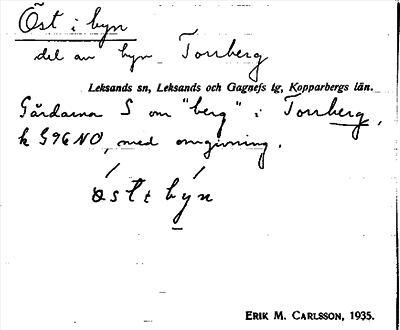 Öst i byn
del av byn Torrberg
Leksands sn, Leksands och Gagnefs tg, Kopparbergs län.
Gårdarna S om "berg" i Torrberg,
k G96NO, med omgivning.
östt býn
ERIK M. CARLSSON, 1935.